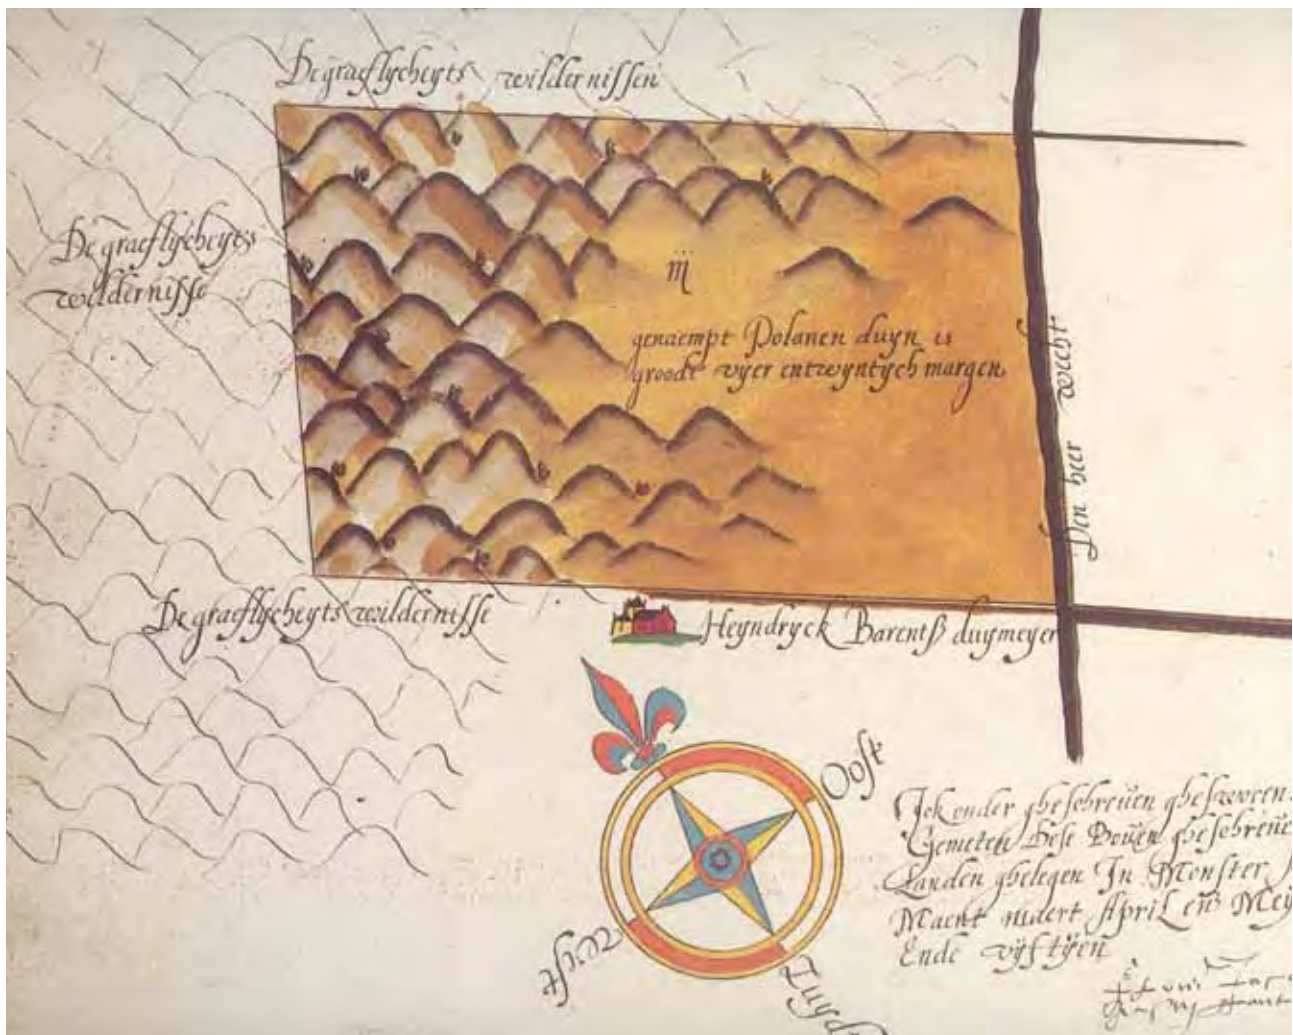 De graeflycheyts wildernissen
De graeflycheyts
wildernisse
genaempt Polanen duyn is
groodt vyer entwyntych margen
Den heer wech
De graeflycheyts wildernisse
Heyndryck Barentß duymeyer
Oost
Zuydt
West
Ick onder gheschreven ghesworen
Gemeten dese Boven ghescreve
Landen ghelegen In Monster
Maent maert April en Mey
Ende vyftyen